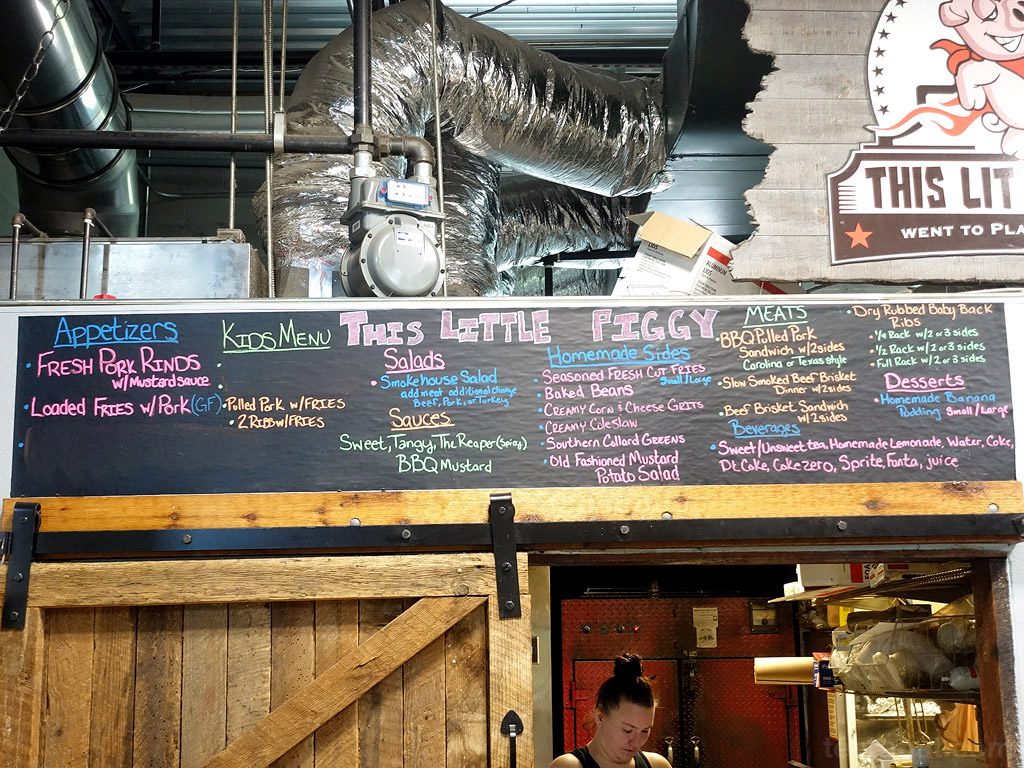 THIS LIT
WENT TO PLA
Appetizers
FRESH PORK RINDS
w/Mustard sauce
Loaded FRIES w/Pork (GF)
KIDS MENU
Pulled Pork w/FRIES
2 RIBS w/FRIES
THIS LITTLE PIGGY
Salads
Smokehouse Salad
add meat additional charge
Beef, Pork, or Turkey
Sauces
Sweet, Tangy, The Reaper (Spicy)
BBQ Mustard
Homemade Sides
SEASONED FRESH CUT FRIES
Small/Large
Baked Beans
CREAMY CORN & CHEESE GRITS
CREAMY Coleslaw
Southern Collard GREENS
Old Fashioned Mustard
Potato Salad
MEATS
BBQ Pulled Pork
Sandwich w/2 sides
Carolina or Texas style
Slow Smoked Beef Brisket
Dinner w/2 sides
Beef Brisket Sandwich
w/2 sides
Dry Rubbed Baby Back
Ribs
1/4 Rack w/2 or 3 sides
1/2 Rack w/2 or 3 sides
Full Rack w/2 or 3 sides
Desserts
Homemade Banana
Pudding Small/Large
Beverages
Sweet/Unsweet tea, Homemade Lemonade, Water, Coke,
Dt Coke, Coke zero, Sprite, Fanta, juice